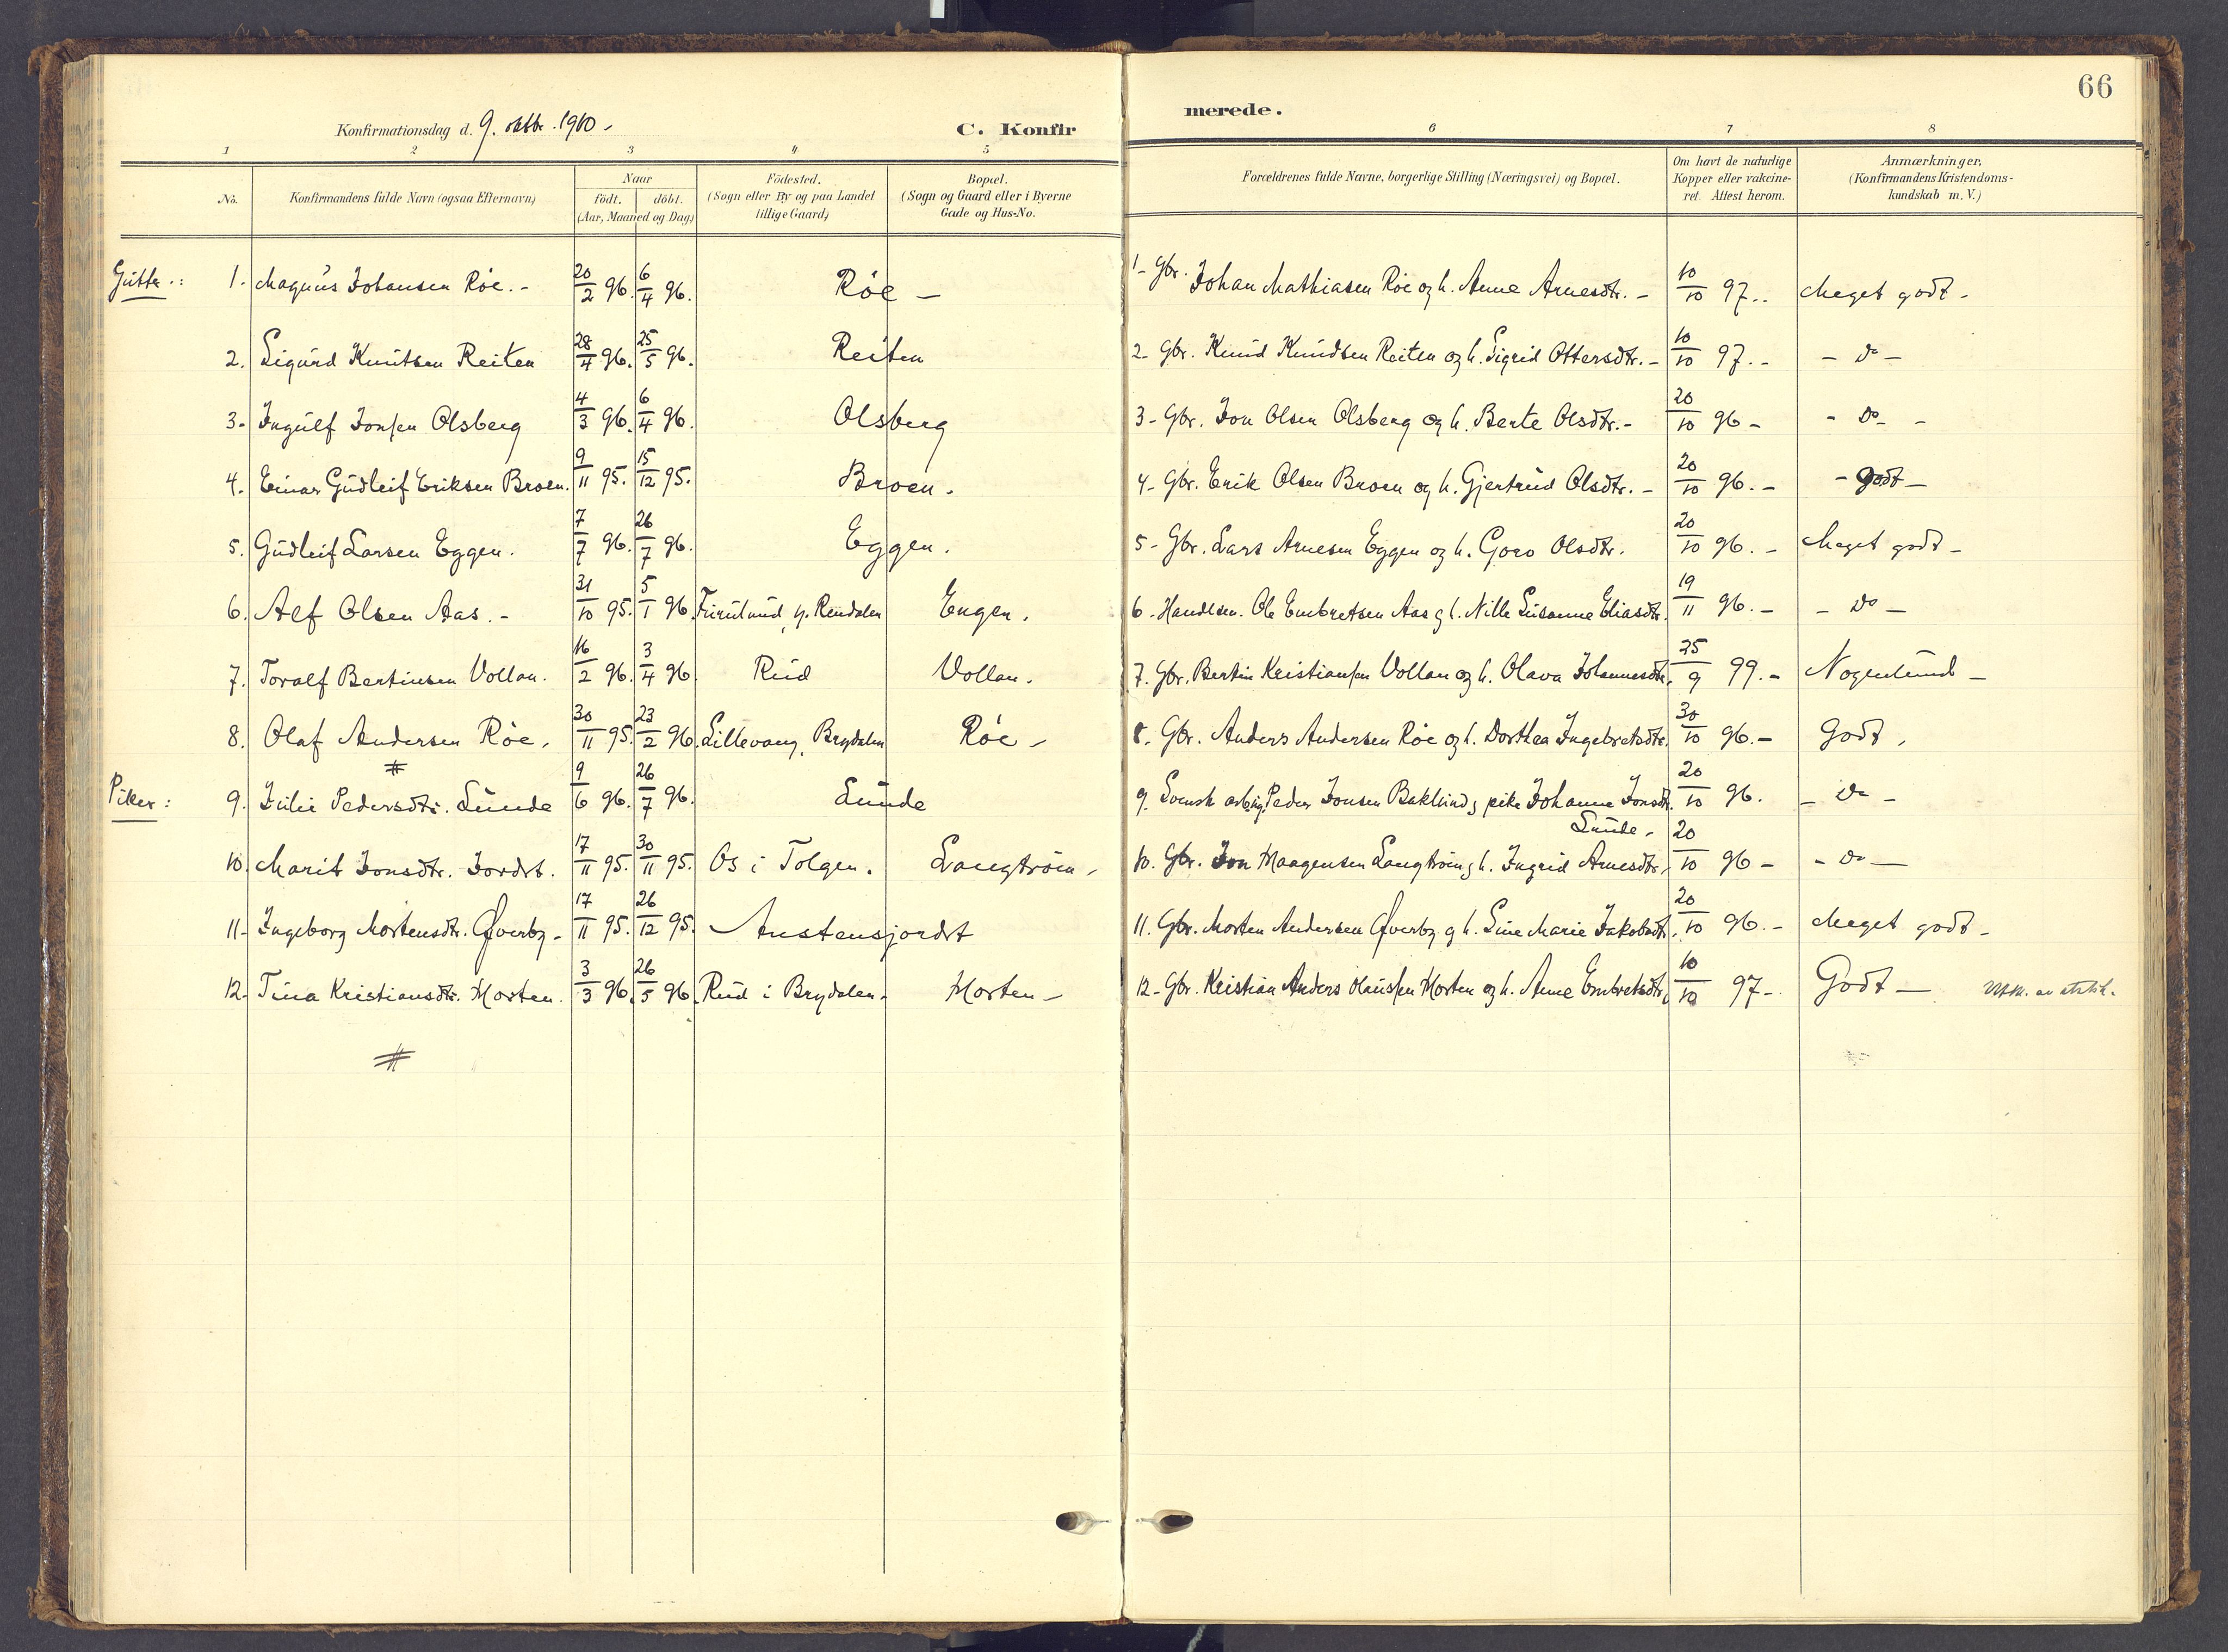 66
Konfirmationsdag d. 9. oktbr. 1910.
C. Konfir
merede.
1 2 3 4 5 6 7 8
No.
Konfirmandens fulde Navn (ogsaa Efternavn)
Naar
födt. döbt.
(Aar, Maaned og Dag)
Födested.
(Sogn eller By og paa Landet
tillige Gaard)
Bopæl.
(Sogn og Gaard eller i Byerne
Gade og Hus-No.
Forældrenes fulde Navne, borgerlige Stilling (Næringsvei) og Bopæl.
Om havt de naturlige
Kopper eller vakcine-
ret. Attest herom.
Anmærkninger.
(Konfirmandens Kristendoms-
kundskab m. V.)
Gutter:
1. Magnus Johansen Röe. - 20/2 96. 6/4 96. Röe - 1- Gbr. Johan Mathiasen Röe og h. Anne Arnesdtr. - 10/10 97.. Meget godt -
2. Sigurd Knutsen Reiten 28/4 96. 25/5 96. Reiten 2- Gbr. Knud Knudsen Reiten og h. Sigrid Ottersdtr. - 10/10 97.- - Do -
3- Ingulf Jonsen Olsberg 4/3 96. 6/4 96. Olsberg 3- Gbr. Jon Olsen Olsberg og h. Berte Olsdtr.- 20/10 96 - - Do - -
4. Einar Gudleif Eriksen Broen. 9/11 95. 15/12 95. Broen. 4- Gbr. Erik Olsen Broen og h. Gjertrud Olsdtr. - 20/10 96. - - Godt -
5. Gudleif Larsen Eggen. 7/7 96. 26/7 96. Eggen. 5- Gbr. Lars Arnesen Eggen og h. Goro Olsdtr. 20/10 96. - Meget godt -
6. Alf Olsen Aas. - 31/10 95. 5/1 96. Furulund, y. Rendalen Engen. 6- Handlsm. Ole Embretsen Aas og h. Nille Susanne Eliasdtr. 19/11 96. - - Do -
7. Toralf Bertinsen Vollan. 16/2 96. 3/4 96 Rud Vollan. 7. Gbr. Bertin Kristiansen Vollan og h. Olava Johannesdtr. 25/9 99. - Nogenlund -
8. Olaf Andersen Röe. 30/11 95. 23/2 96. Lillevang, Brydalen Röe - 8. Gbr. Anders Andersen Röe og h. Dorthea Ingebretsdtr. 30/10 96. - Godt.
#
Piker:
9. Julie Pedersdtr. Lunde 9/6 96. 26/7 96. Lunde 9. Svensk arb. Peder Jonsen Baklund, pike Johanne Jonsdtr. 20/10 96. - Do -
Lunde -
10. Marit Jonsdtr. Jordet. 17/11 95. 30/11 95. Os i Tolgen. Langtröen - 10. Gbr. Jon Haagensen Langtröen og h. Ingrid Arnesdtr. 20/10 96 - - Do -
11- Ingeborg Mortensdtr. Øverby - 17/11 95. 26/12 95. Austensjordet 11. Gbr. Morten Andersen Øverby og h. Line Marie Jakobsdtr. 20/10 96. - Meget godt -
12- Tina Kristiansdtr. Horten. 3/3 96. 26/5 96. Rud i Brydalen - Horten - 12- Gbr. Kristian Anders Hansen Horten og h. Anne Embretsdtr. 10/10 97- Godt -
#